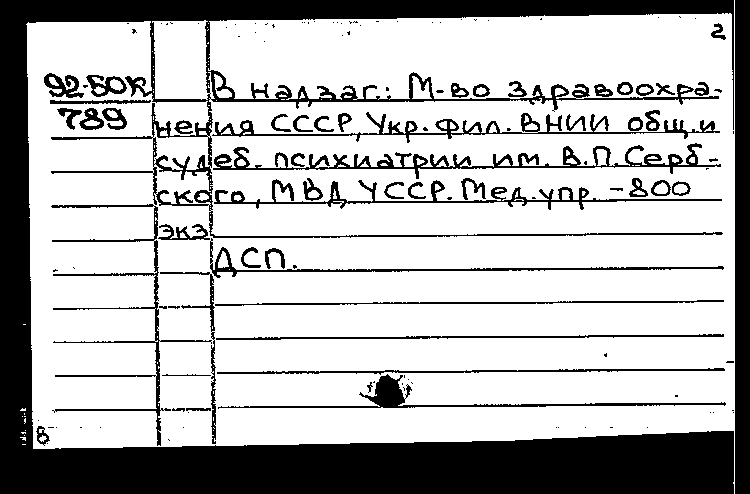 2
92-50К В надзаг.: М-во здравоохра-
789 нения СССР, Укр. фил. ВНИИ общ. и
судеб. психиатрии им. В.П. Серб-
ского, МВД УССР. Мед. упр. - 800
экз
ДСП.
8